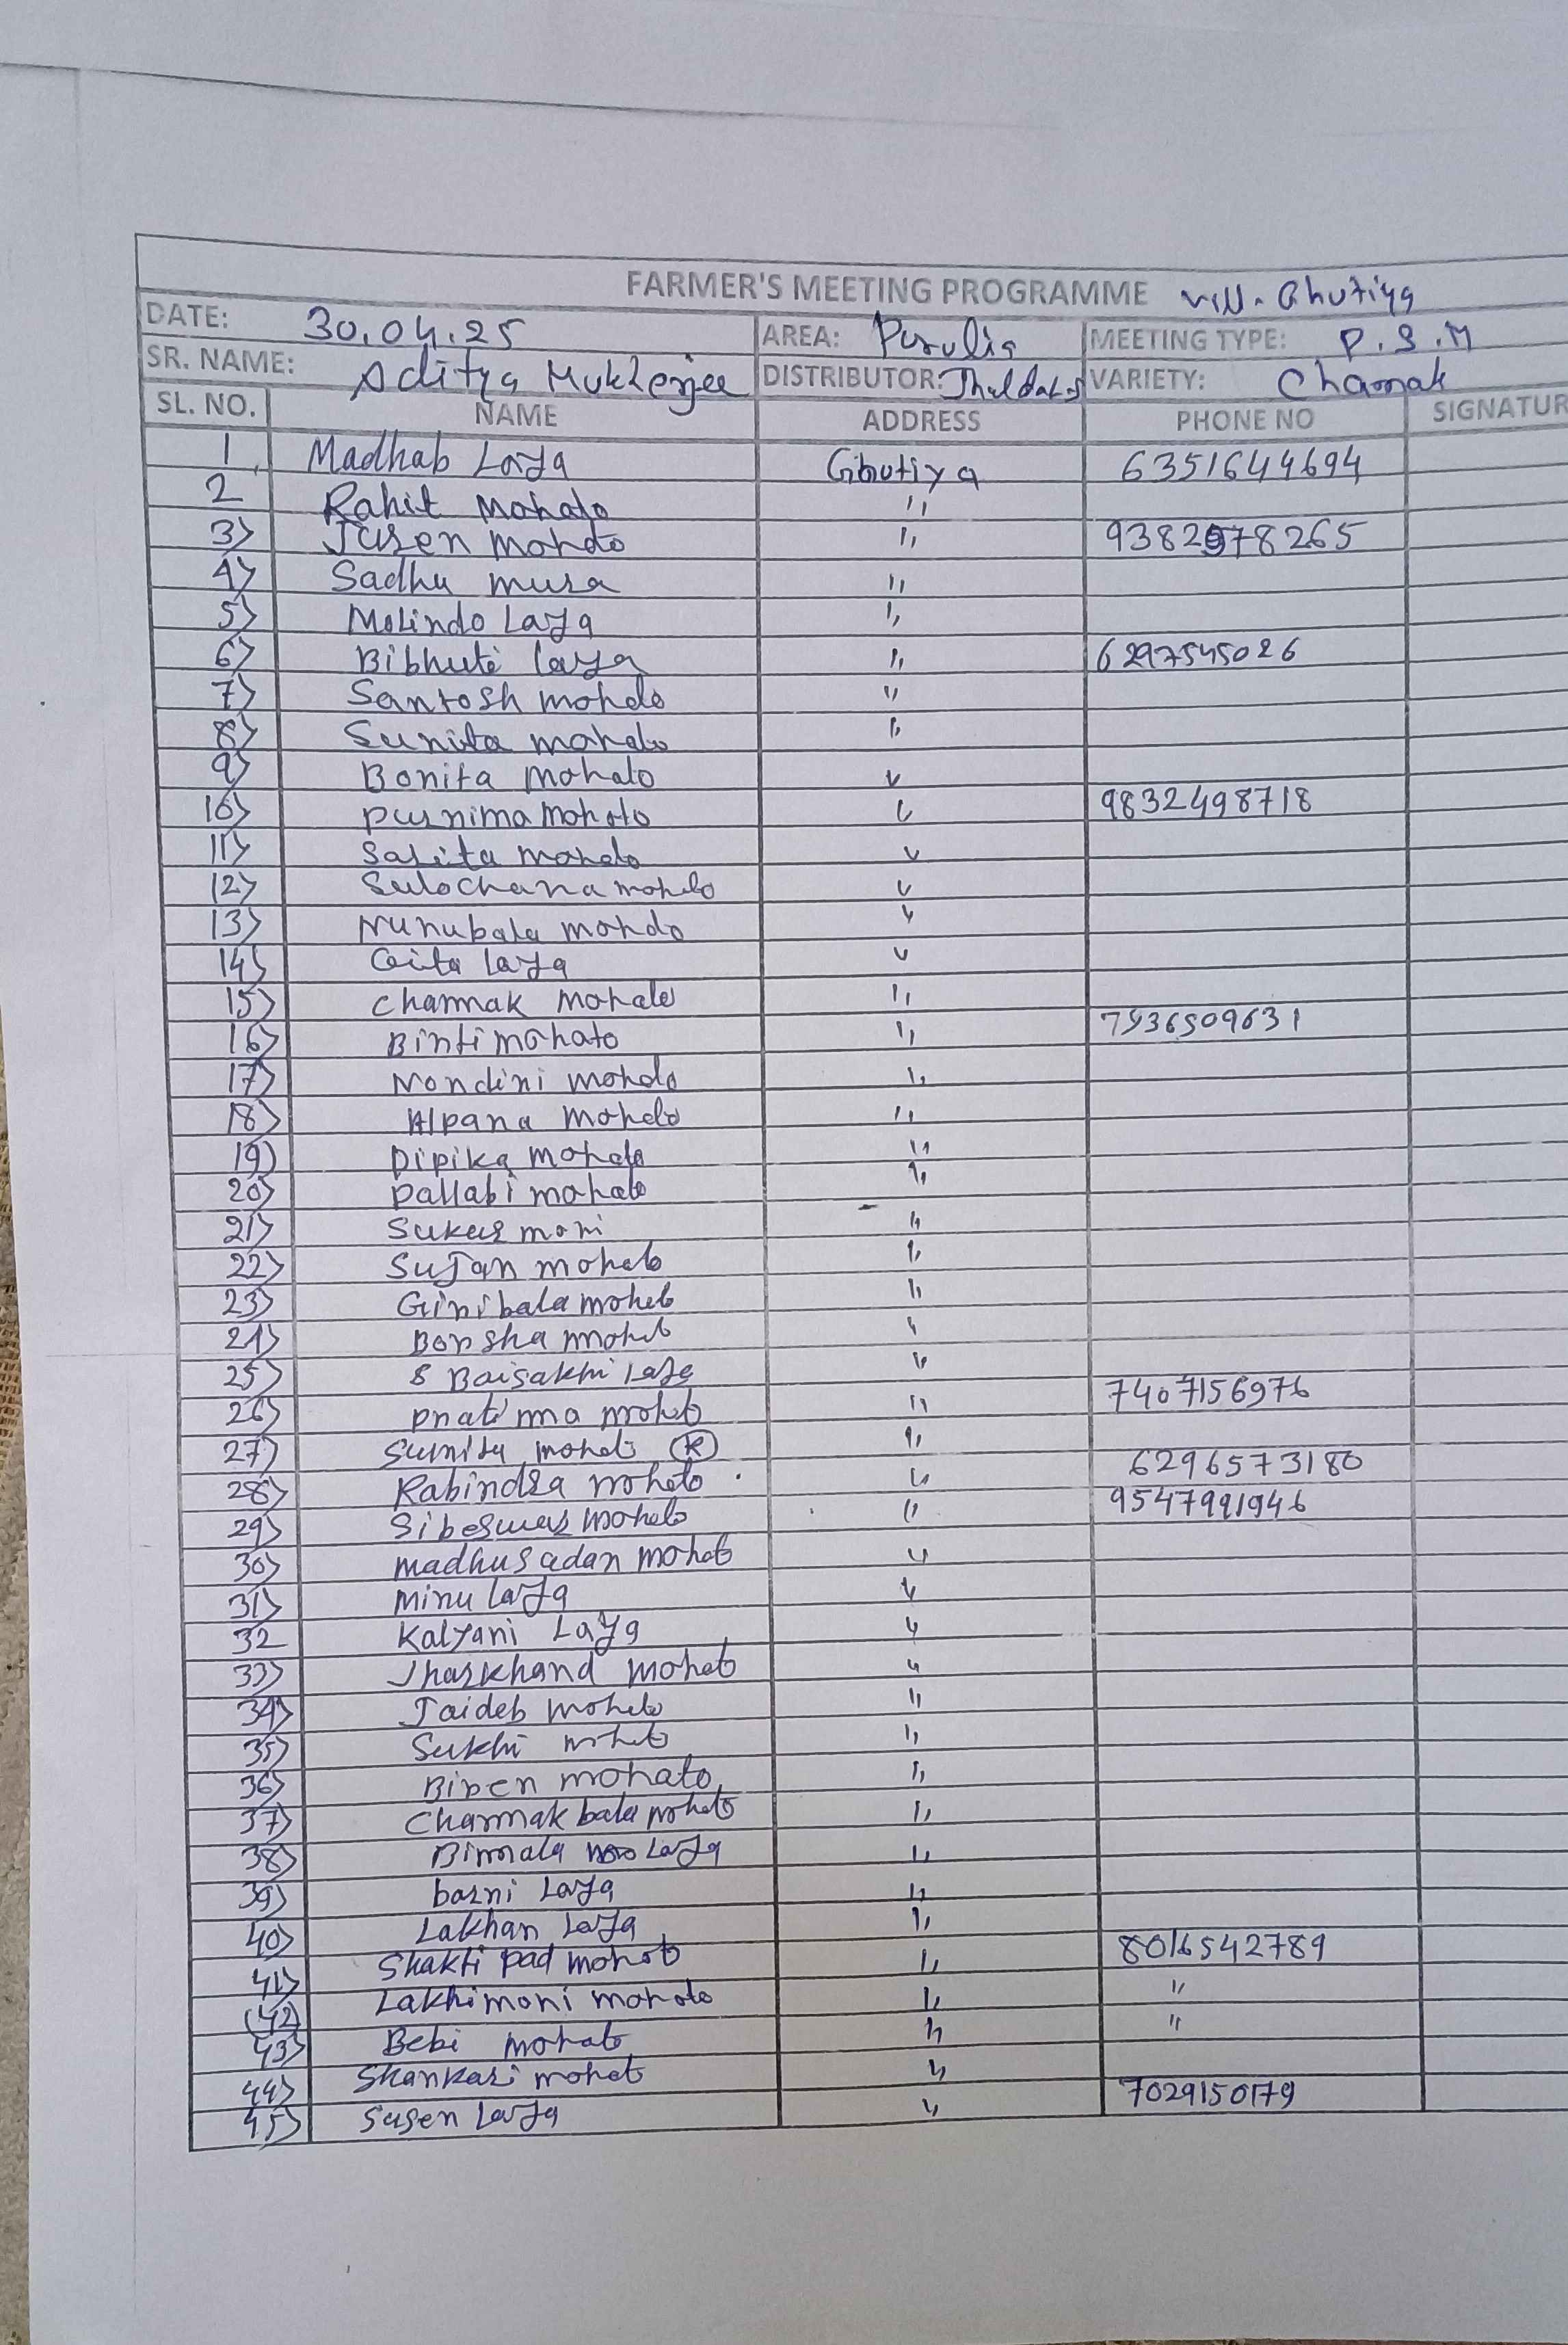 FARMER'S MEETING PROGRAMME vill. Ghutiya
DATE: 30.04.25 AREA: Purulia MEETING TYPE: P.S.M
SR. NAME: Aditya Mukherjee DISTRIBUTOR: VARIETY: Chamak
SL. NO. NAME ADDRESS PHONE NO SIGNATUR
1 Madhab Laya Ghutiya 6351644694
2 Rahit Mahato "
3) Juren Mahato " 9382978265
4) Sadhu mura "
5) Molindo Laya "
6) Bibhuti laya " 6297545026
7) Santosh mohato "
8) Sunita mahato "
9) Bonita Mohato "
10) purnima mohato " 9832498718
11) Sabita mohato "
12) Sulochana mohato "
13) Nunubala mohato "
14) Gita laya "
15) Chammak mohato "
16) Binti mohato "
17) Nondini mohato "
18) Alpana mohato "
19) Dipika mohato "
20) pallabi mohato "
21) Sukur moni "
22) Sujan mohato "
23) Ginibala mohato "
24) Borsha mohato "
25) Baisakhi laya "
26) pratima mohato " 7407156976
27) Sumita mohato (K) "
28) Rabindra mohato " 6296573180
29) Sibeswar mohato " 9547991946
30) madhusadan mohato "
31) minu laya "
32 Kalyani Laya "
33) Jharkhand mohato "
34) Jaideb mohato "
35) Sukhi mohato "
36) Biren mohato "
37) Chammak bala mohato "
38) Bimala Laya "
39) barni Laya "
40) Lakhan Laya "
41) Shakti pad mohato " 8016542789
(42) Lakhimoni mohato " "
43) Bebi mohato " "
44) Shankari mohato "
45) Susen Laya " 7029150179